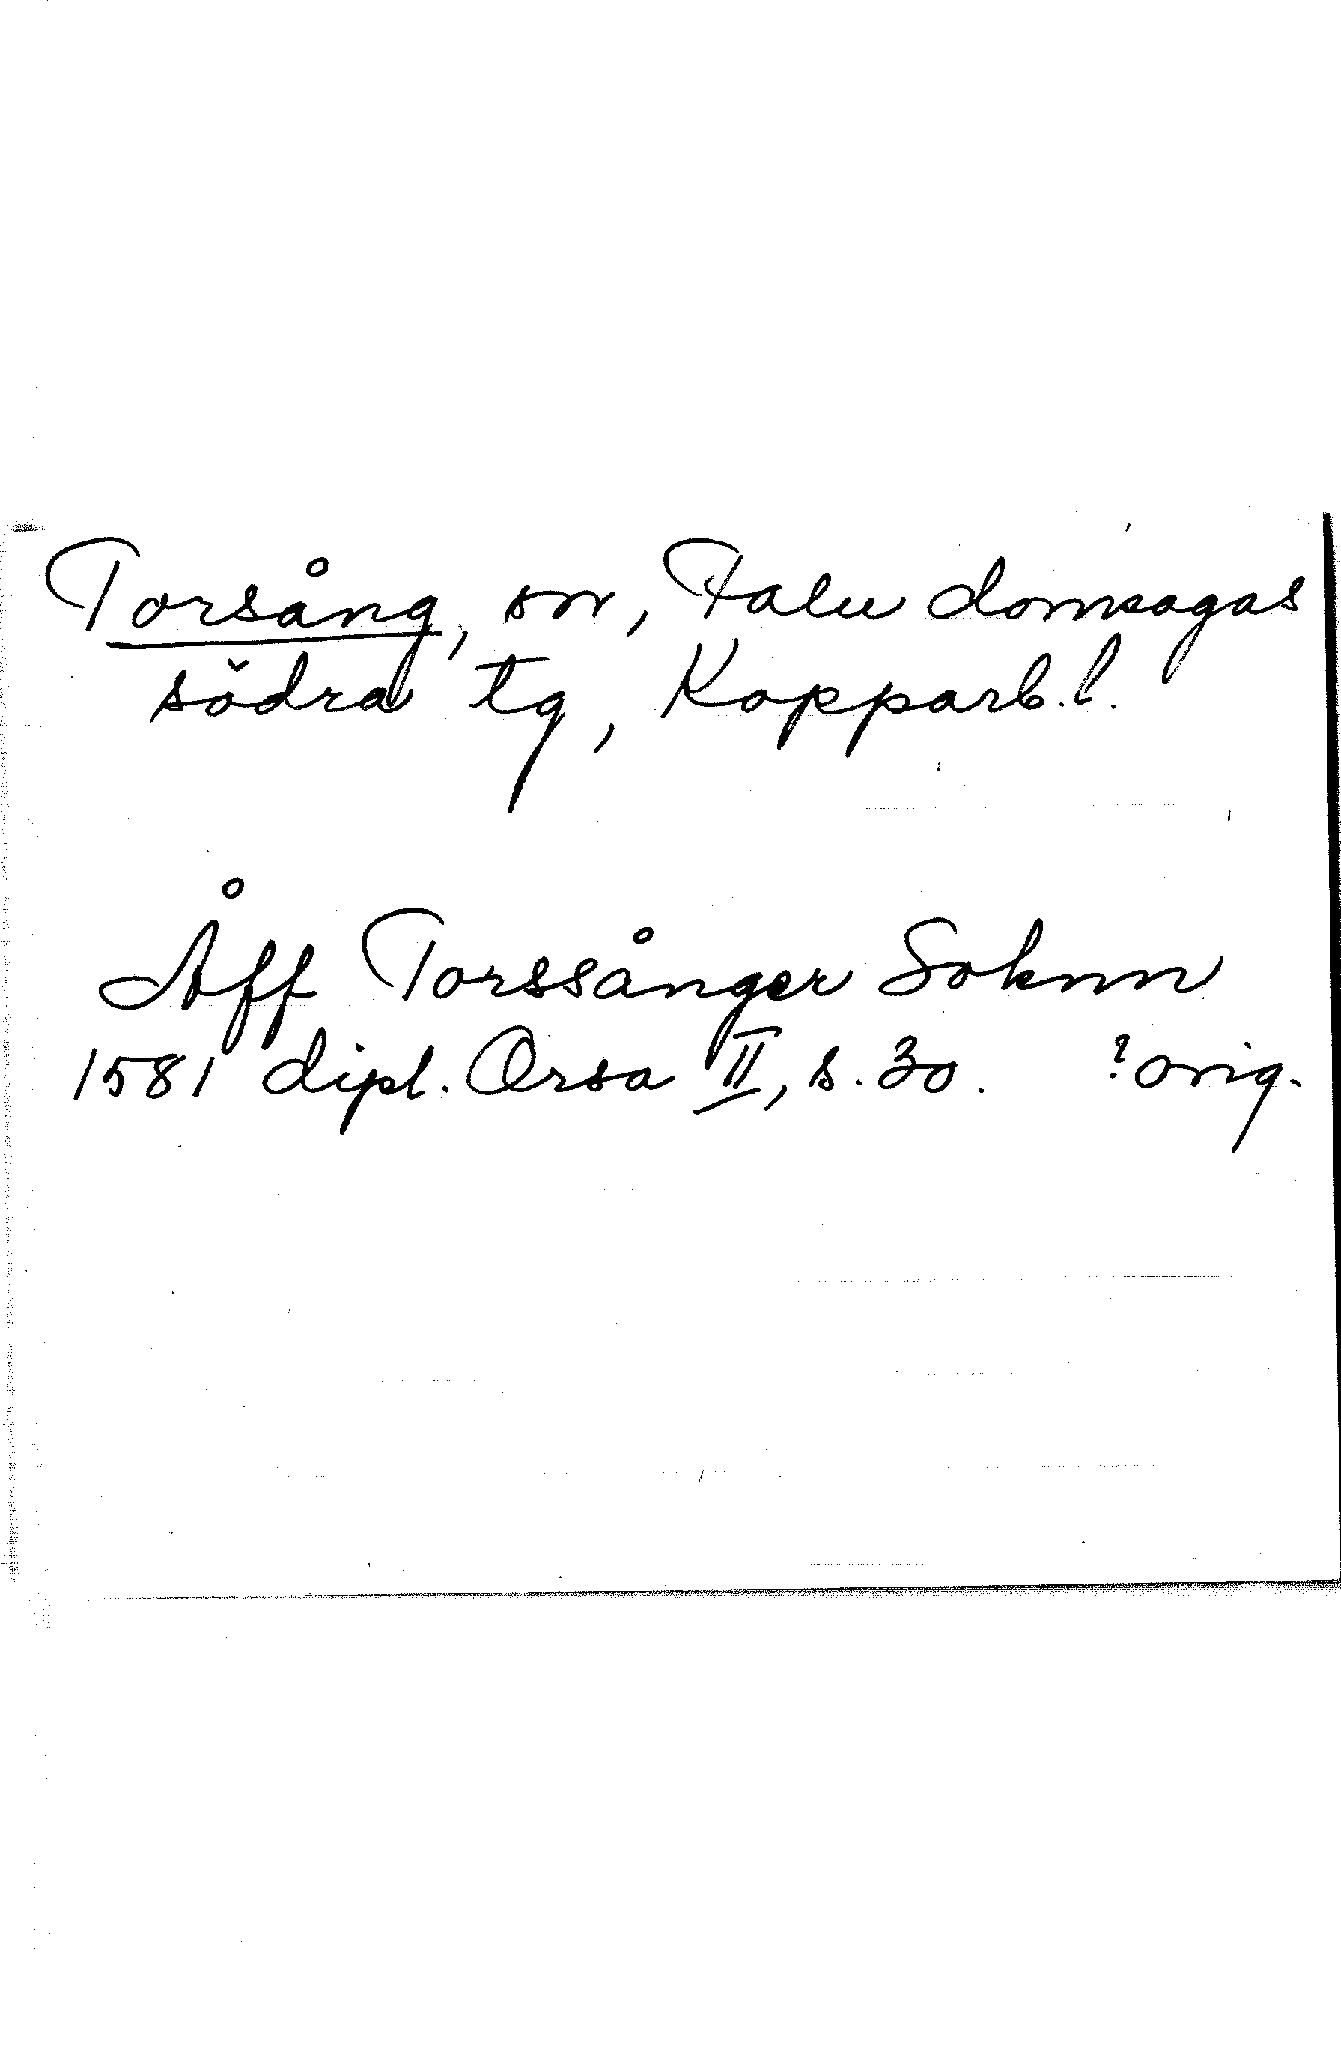 Torsång, sn, Falu domsagas
södra tg, Kopparb.l.
Åff Torssånger Soknn
1581 dipl. Orsa II, s. 30. ? orig.